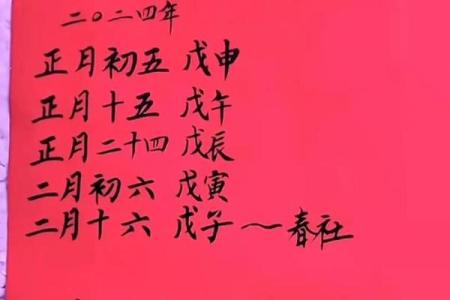 二〇二四年
正月初五 戊申
正月十五 戊午
正月二十四 戊辰
二月初六 戊寅
二月十六 戊子~春社